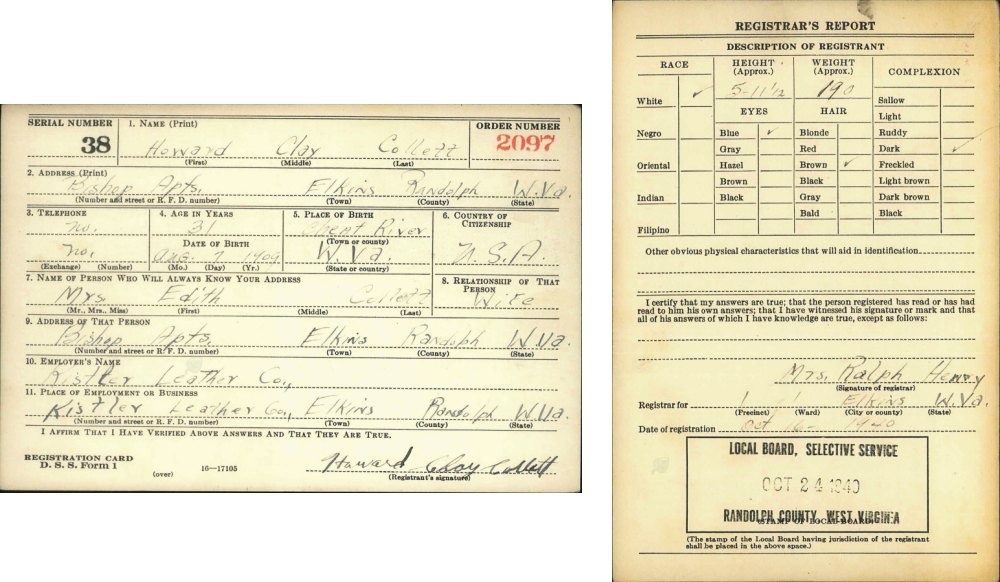 SERIAL NUMBER 1. NAME (Print) ORDER NUMBER
38 Howard Clay Collett 2097
(First) (Middle) (Last)
2. ADDRESS (Print)
Bishop Apts. Elkins Randolph W.Va.
(Number and street or R. F. D. number) (Town) (County) (State)
3. TELEPHONE 4. AGE IN YEARS 5. PLACE OF BIRTH 6. COUNTRY OF CITIZENSHIP
no. 31 Chent River
DATE OF BIRTH (Town or county)
no. Aug. 7 1909 W. Va. U.S.A.
(Exchange) (Number) (Mo.) (Day) (Yr.) (State or country)
7. NAME OF PERSON WHO WILL ALWAYS KNOW YOUR ADDRESS 8. RELATIONSHIP OF THAT PERSON
Mrs Edith Collett Wife
(Mr., Mrs., Miss) (First) (Middle) (Last)
9. ADDRESS OF THAT PERSON
Bishop Apts. Elkins Randolph W.Va.
(Number and street or R. F. D. number) (Town) (County) (State)
10. EMPLOYER'S NAME
Kistler Leather Co.,
11. PLACE OF EMPLOYMENT OR BUSINESS
Kistler Leather Co., Elkins Randolph W.Va.
(Number and street or R. F. D. number) (Town) (County) (State)
I AFFIRM THAT I HAVE VERIFIED ABOVE ANSWERS AND THAT THEY ARE TRUE.
REGISTRATION CARD
D. S. S. Form 1 16—17105 Howard Clay Collett
(over) (Registrant's signature)
REGISTRAR'S REPORT
DESCRIPTION OF REGISTRANT
RACE HEIGHT (Approx.) WEIGHT (Approx.) COMPLEXION
5-11 1/2 190
White ✓ Sallow
EYES HAIR Light
Negro Blue ✓ Blonde Ruddy
Gray Red Dark ✓
Oriental Hazel Brown ✓ Freckled
Brown Black Light brown
Indian Black Gray Dark brown
Bald Black
Filipino
Other obvious physical characteristics that will aid in identification
I certify that my answers are true; that the person registered has read or has had
read to him his own answers; that I have witnessed his signature or mark and that
all of his answers of which I have knowledge are true, except as follows:
Mrs. Ralph Henry
(Signature of registrar)
Registrar for 1 Elkins W.Va.
(Precinct) (Ward) (City or county) (State)
Date of registration Oct 16- 1940
LOCAL BOARD, SELECTIVE SERVICE
OCT 24 1940
RANDOLPH COUNTY, WEST VIRGINIA
(STAMP OF LOCAL BOARD)
(The stamp of the Local Board having jurisdiction of the registrant
shall be placed in the above space.)